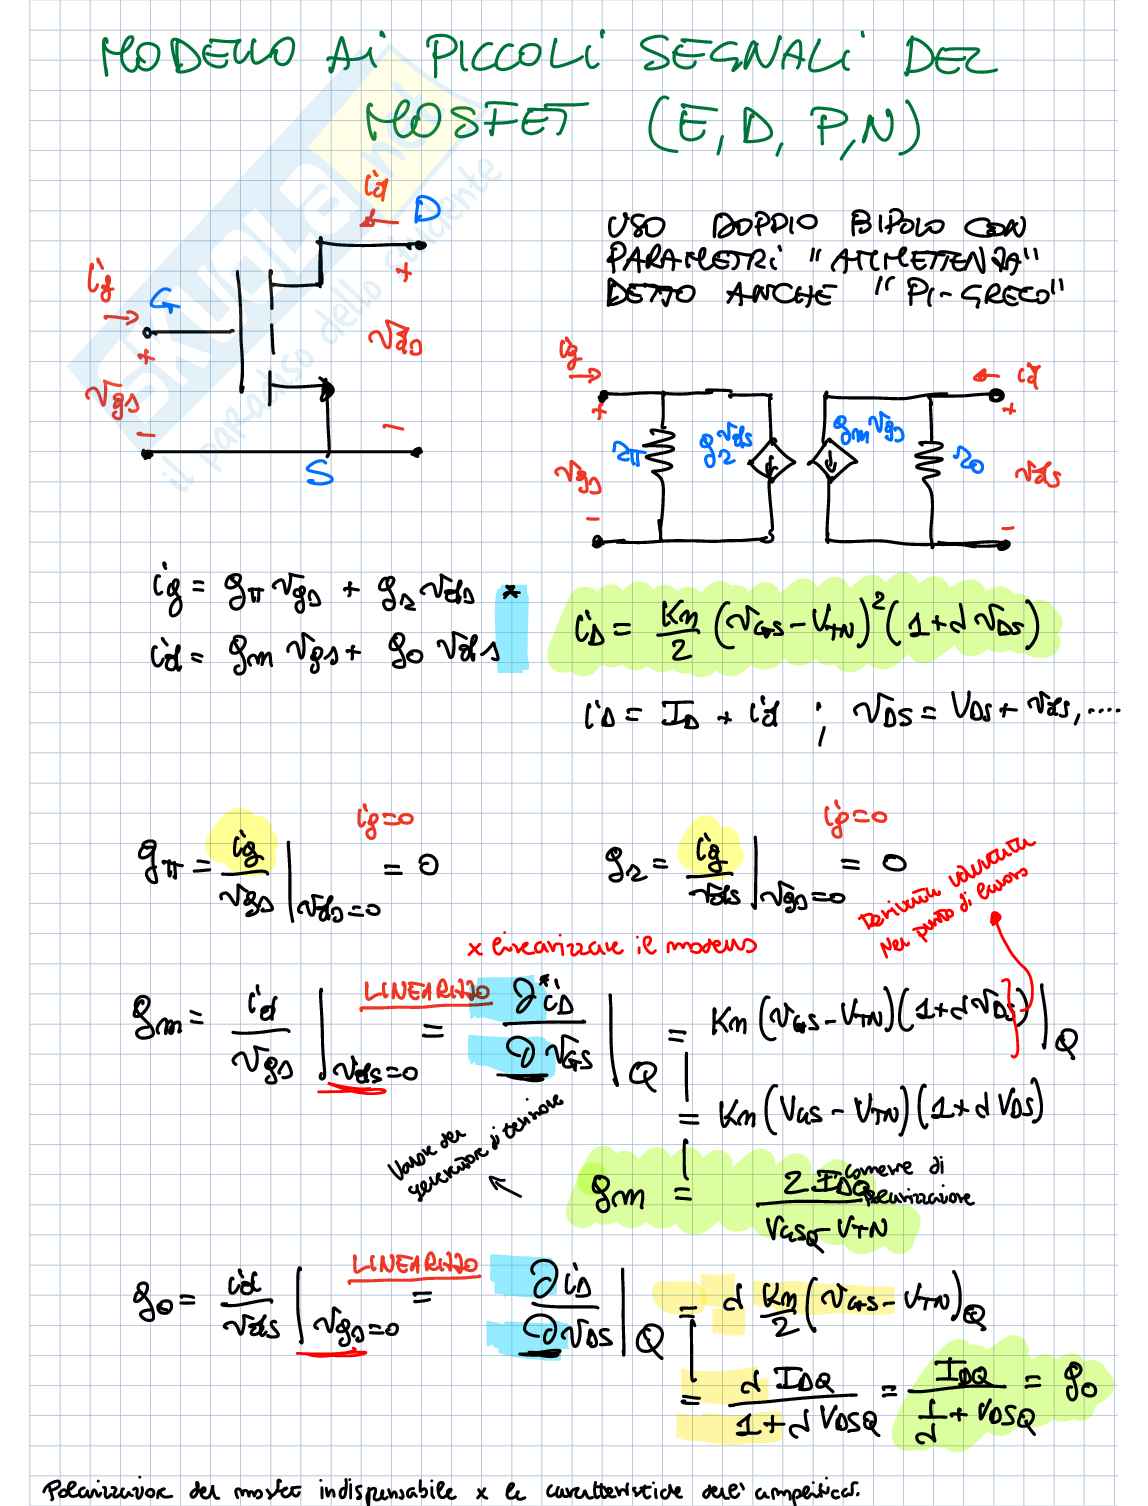 MODELLO Ai PICCOLi SEGNALi DEL
MOSFET (E, D, P, N)
SKUOLA.net
il paradiso dello studente
id
D
ig
G
+
+
vgs
vds
-
-
S
USO DOPPIO BIPOLO CON
PARAMETRi "AMMETTENZA"
DETTO ANCHE "PI-GRECO"
ig
id
+
+
vgs
rπ
gr vds
gm vgs
ro
vds
-
-
ig = gπ vgs + gr vds *
id = gm vgs + go vds
iD = Kn/2 (vGS - VTN)² (1 + λ vDS)
iD = ID + id ; vDS = VDS + vds, ....
ig=0
ig=0
gπ = ig/vgs |vds=0 = 0
gr = ig/vds |vgs=0 = 0
Derivata valutata
nel punto di lavoro
x linearizzare il modello
gm = id/vgs |vds=0 LINEARIZZO = ∂*iD/∂vGS |Q = Kn (vGS - VTN)(1 + λ vDS) |Q
= Kn (VGS - VTN)(1 + λ VDS)
Valore del
generatore di
gm = 2 IDQ/(VGSQ - VTN)
corrente di
polarizzazione
go = id/vds |vgs=0 LINEARIZZO = ∂iD/∂vDS |Q = λ Kn/2 (vGS - VTN)Q
= λ IDQ/(1 + λ VDSQ) = IDQ/(1/λ + VDSQ) = go
Polarizzazione del mosfet indispensabile x le caratteristiche dell' amplificat.